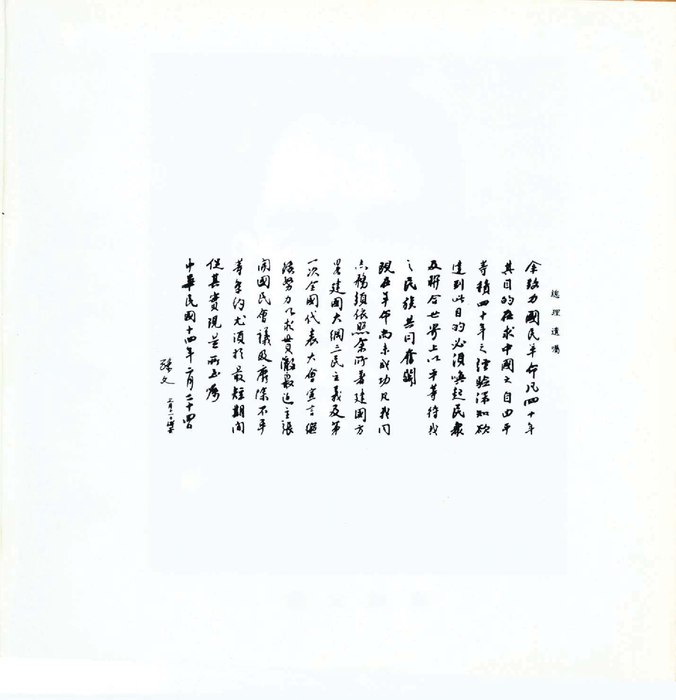 總理遺囑
余致力國民革命凡四十年
其目的在求中國之自由平
等積四十年之經驗深知欲
達到此目的必須喚起民衆
及聯合世界上以平等待我
之民族共同奮鬭
現在革命尚未成功凡我同
志務須依照余所著建國方
畧建國大綱三民主義及第
一次全國代表大會宣言繼
續努力以求貫澈最近主張
開國民會議及廢除不平
等條約尤須於最短期間
促其實現是所至囑
中華民國十四年二月二十四日
孫文